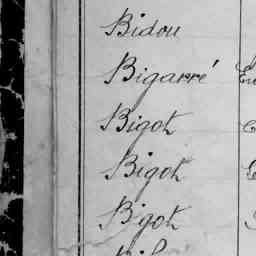 Bidou
Bigarré
Bigot
Bigot
Bigot